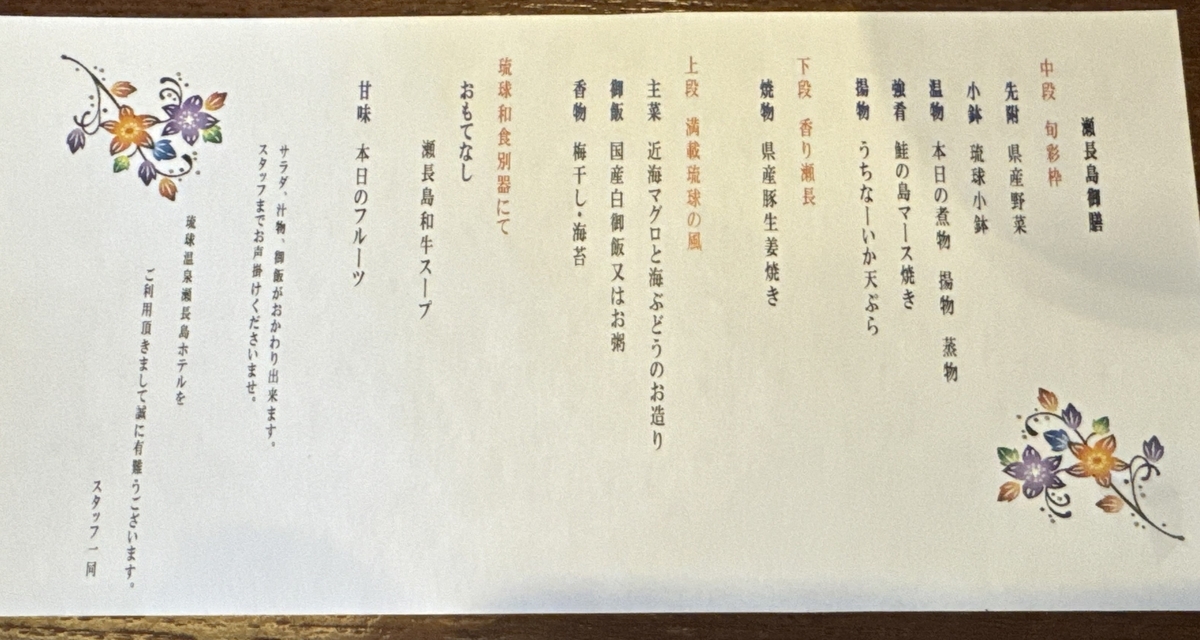 瀬長島御膳
中段　旬彩枠
先附　県産野菜
小鉢　琉球小鉢
温物　本日の煮物　揚物　蒸物
強肴　鮭の島マース焼き
揚物　うちなーいか天ぷら
下段　香り瀬長
焼物　県産豚生姜焼き
上段　満載琉球の風
主菜　近海マグロと海ぶどうのお造り
御飯　国産白御飯又はお粥
香物　梅干し・海苔
琉球和食別器にて
おもてなし
瀬長島和牛スープ
甘味　本日のフルーツ
サラダ、汁物、御飯がおかわり出来ます。
スタッフまでお声掛けくださいませ。
琉球温泉瀬長島ホテルを
ご利用頂きまして誠に有難うございます。
スタッフ一同